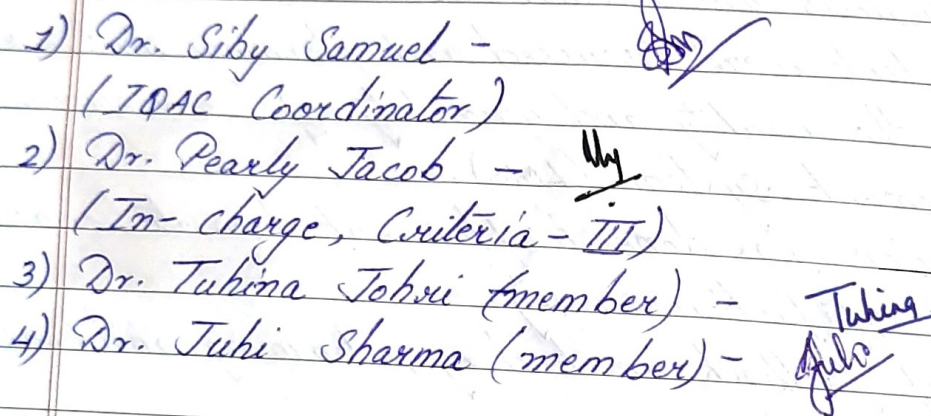 1) Dr. Siby Samuel -
(IQAC Coordinator)
2) Dr. Pearly Jacob -
(In-charge, Criteria - III)
3) Dr. Tuhina Johri (member) - Tuhina
4) Dr. Juhi Sharma (member) - Juhi